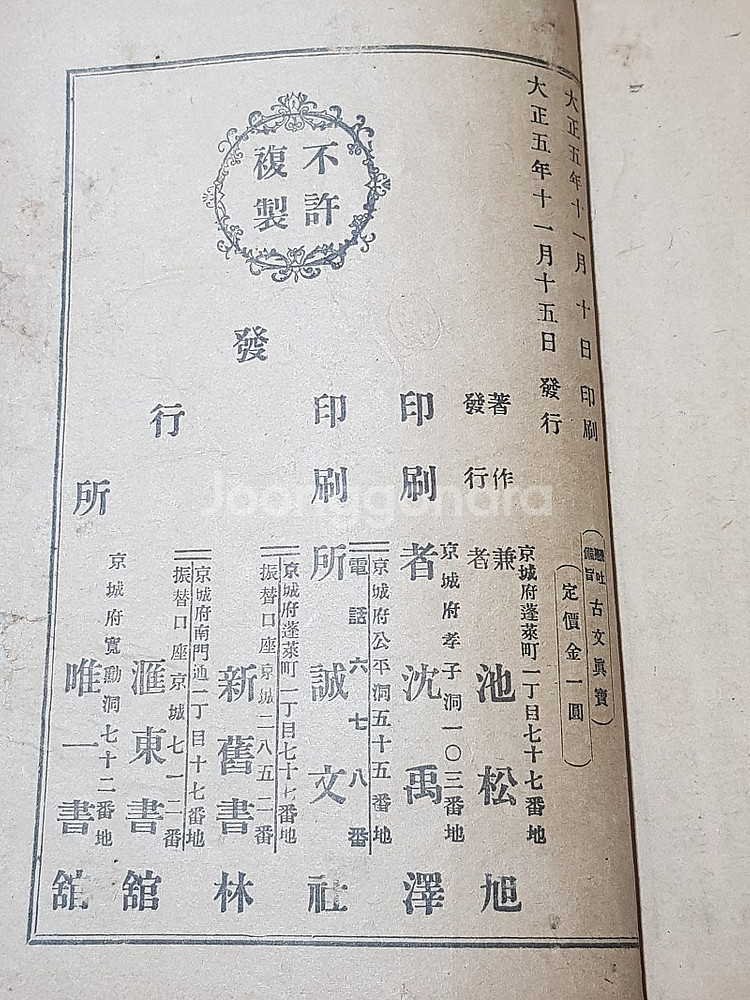 大正五年十一月十日印刷
大正五年十一月十五日發行
懸吐
備旨
古文眞寶
定價金一圓
不許
複製
京城府蓬萊町一丁目七十七番地
著作兼
發行者
池松旭
京城府孝子洞一〇三番地
印刷者 沈禹澤
京城府公平洞五十五番地
電話六七八番
印刷所 誠文社
發行所
京城府蓬萊町一丁目七十七番地
振替口座京城二八五二番
新舊書林
京城府南門通一丁目十七番地
振替口座京城七一二番
滙東書舘
京城府寬勳洞七十二番地
唯一書舘
Joonggonara